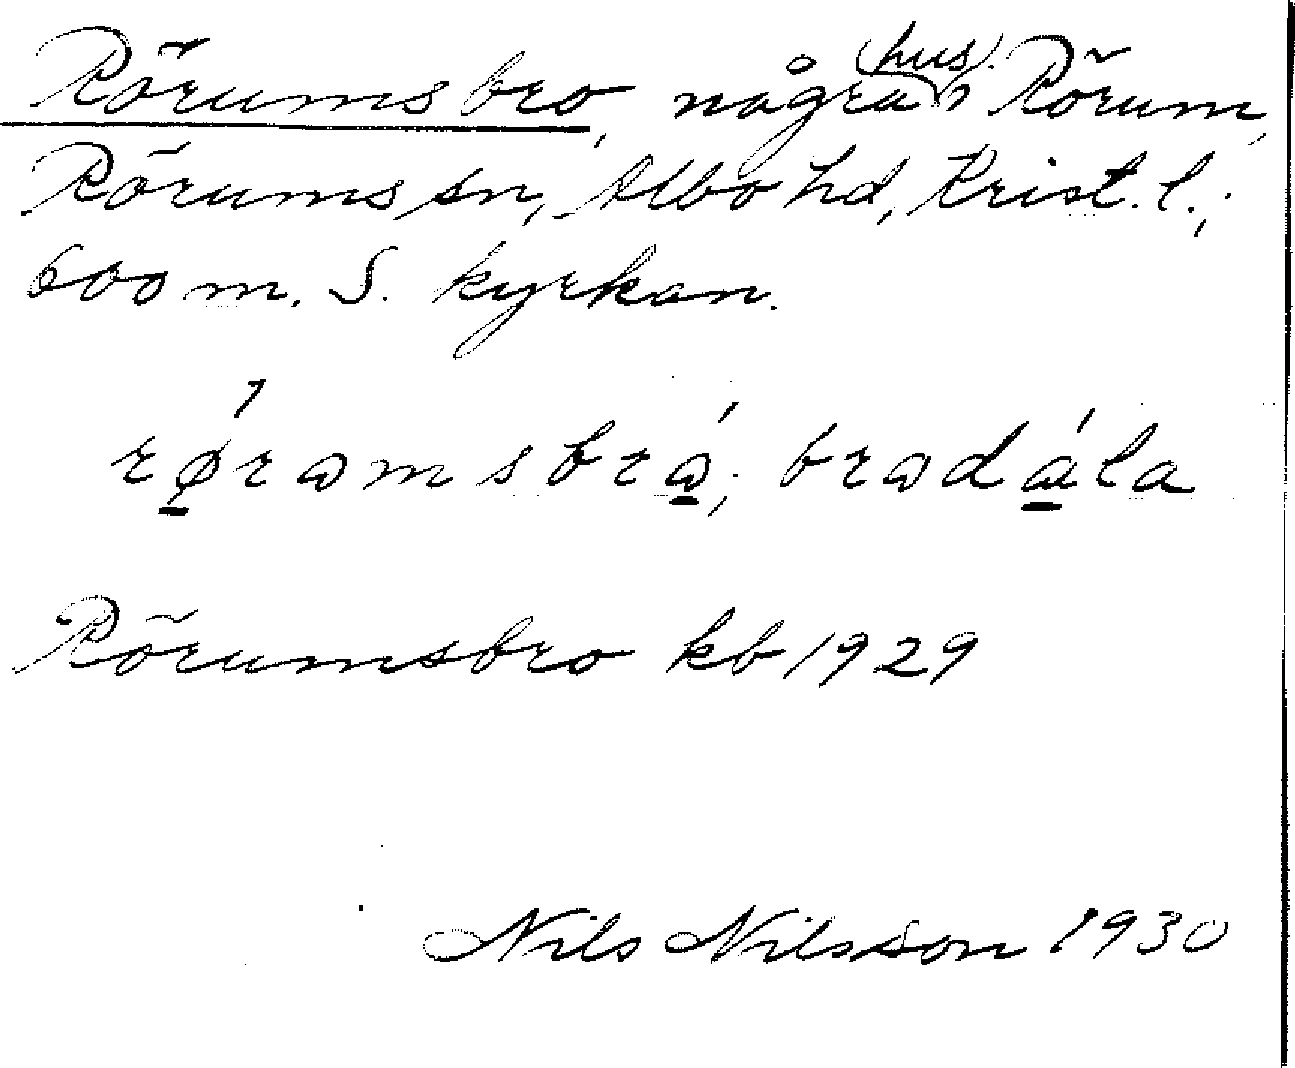 Rörumsbro, några hus i Rörum,
Rörums sn, Albo hd, Krist. l.;
600 m. S. kyrkan.
Rörumsbro kb 1929
Nils Nilsson 1930